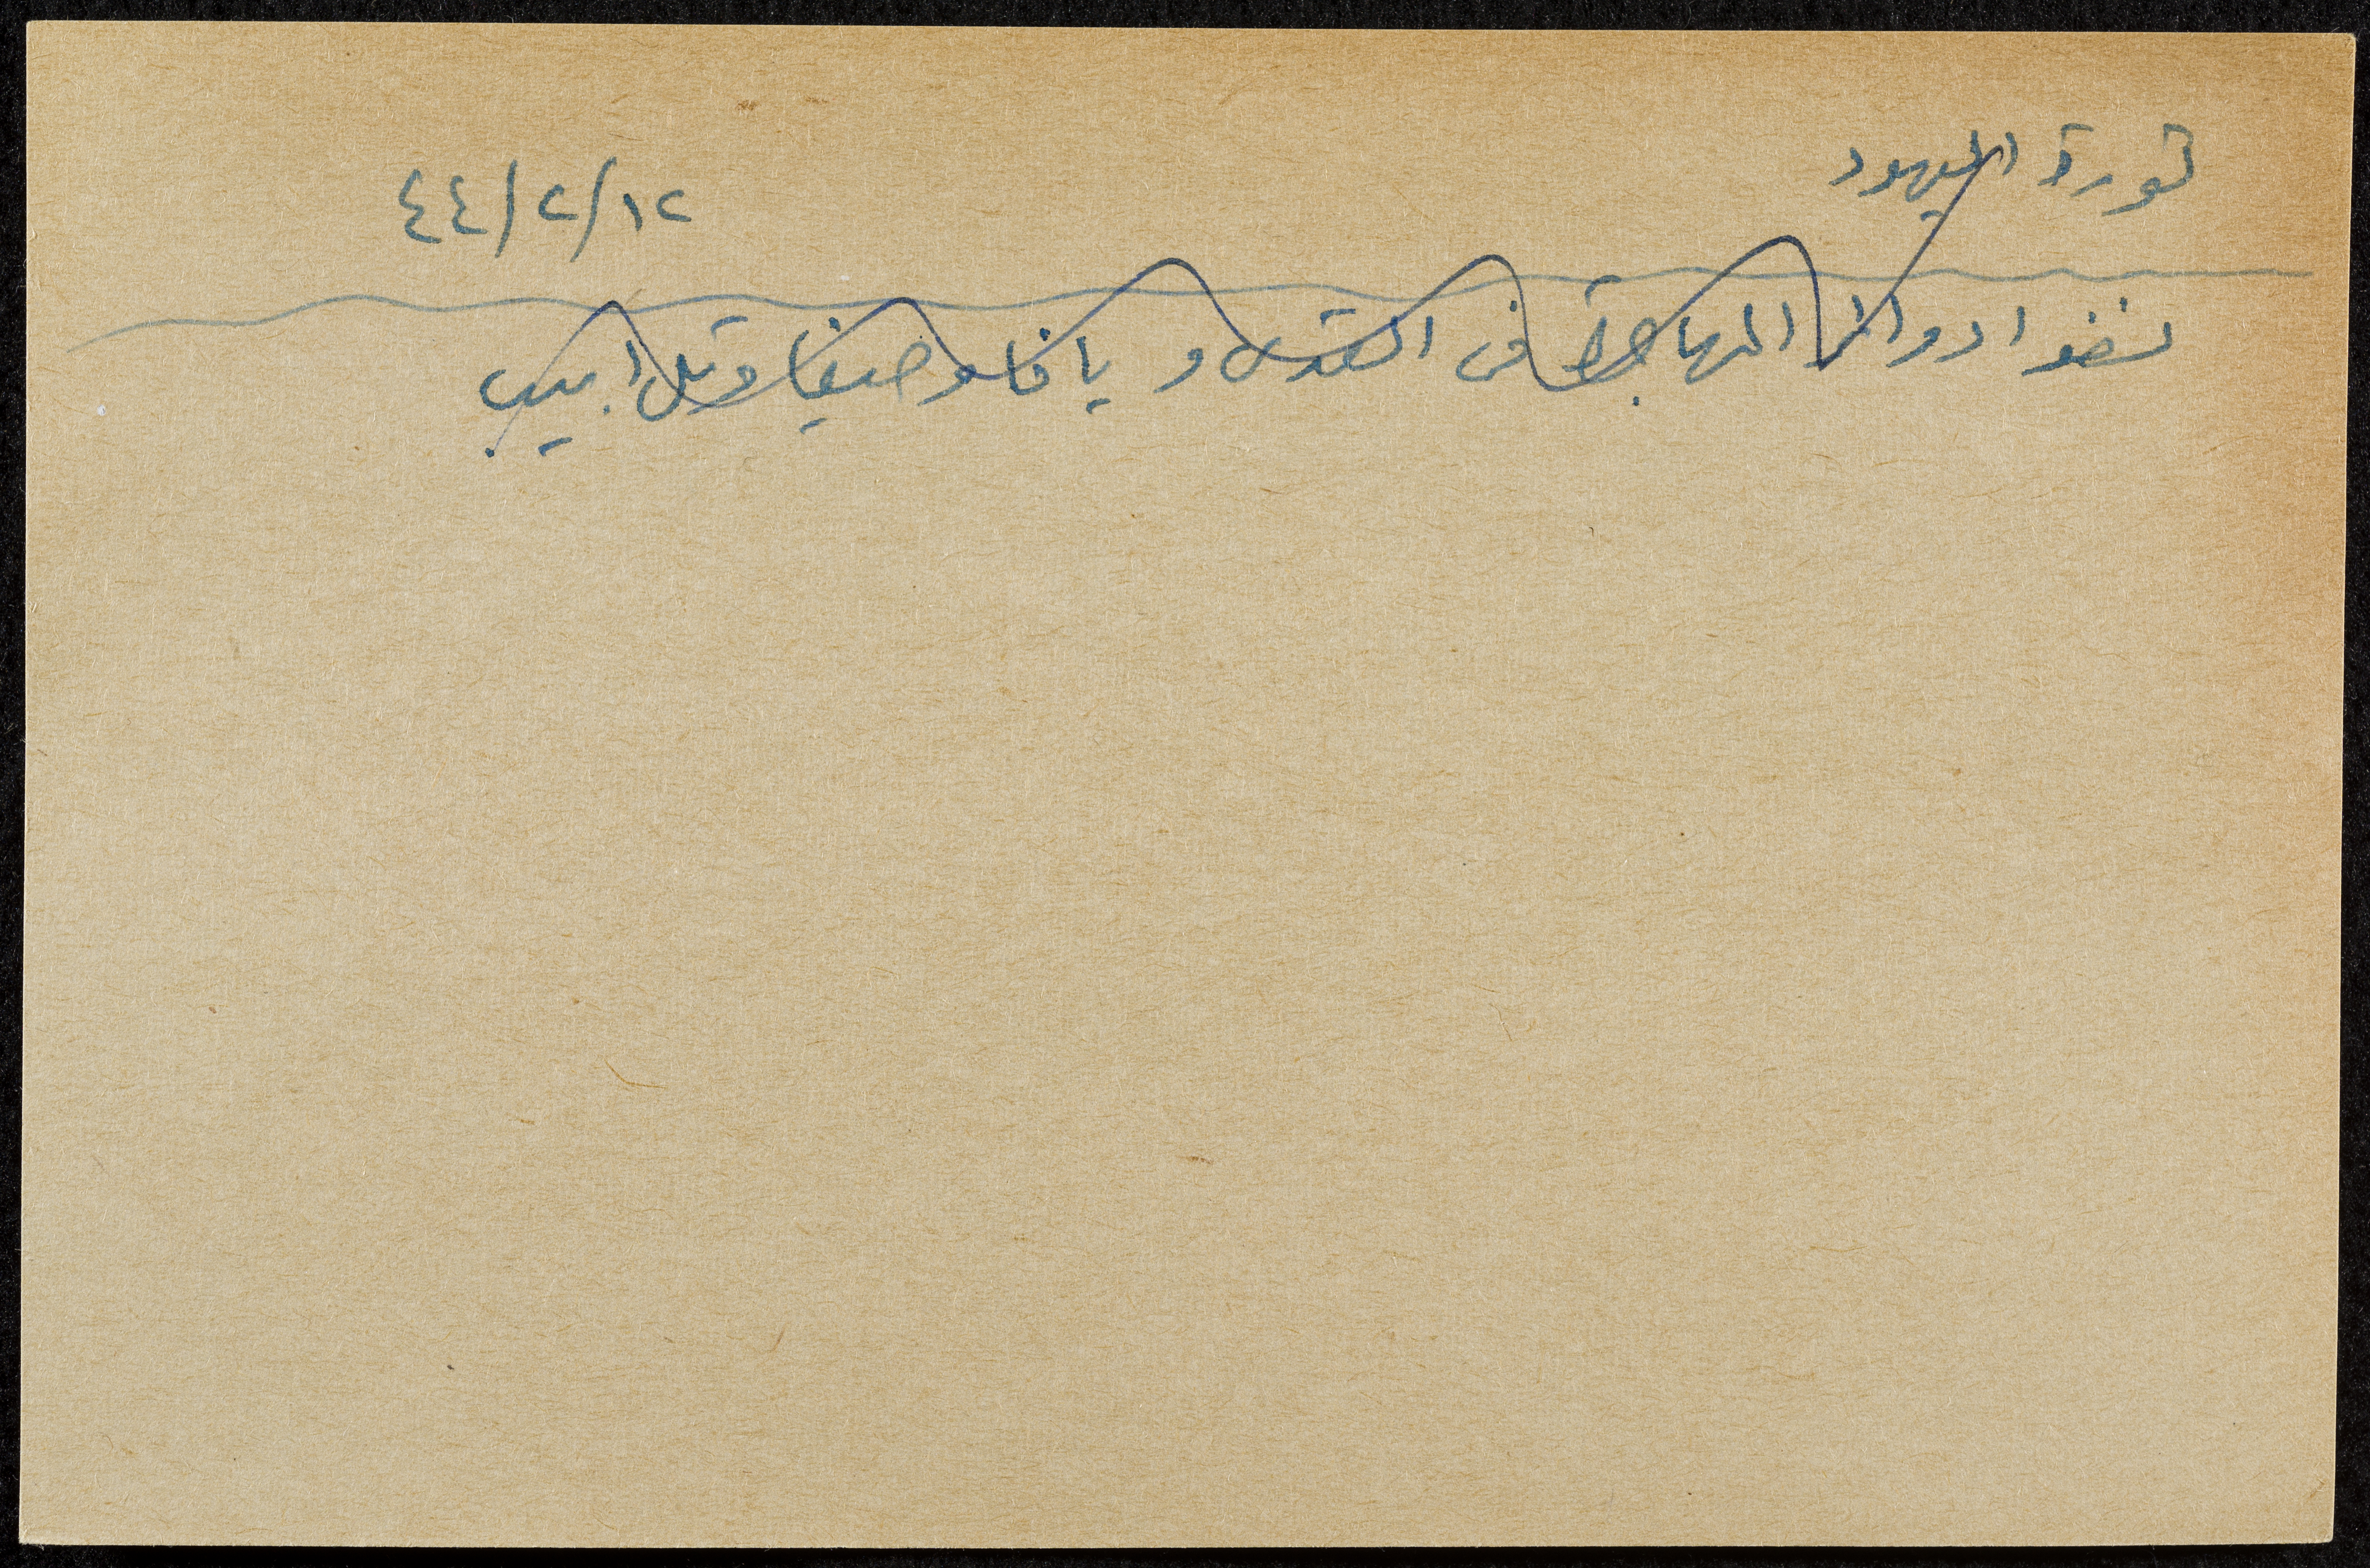 ثورة اليهود
١٢/٢/٤٤
نسفوا دوائر المهاجرة في القدس و يافا و حيفا وتل ابيب